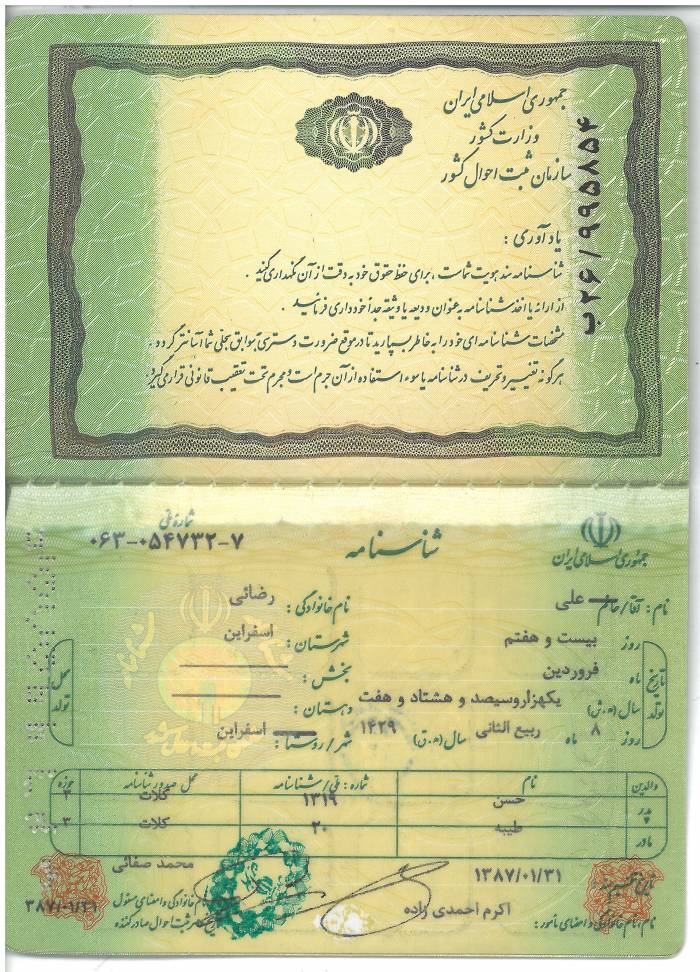 جمهوری اسلامی ایران
وزارت کشور
سازمان ثبت احوال کشور
ب۲۶/۹۹۵۸۵۴
یادآوری :
شناسنامه سند هویت شماست ، برای حفظ حقوق خود به دقت از آن نگهداری کنید .
از ارائه یا اخذ شناسنامه به عنوان ودیعه یا وثیقه جداً خودداری فرمائید .
مشخصات شناسنامه ای خود را به خاطر بسپارید تا در موقع ضرورت دسترسی به سوابق سجلی شما آسانتر گردد .
هرگونه تغییر و تحریف در شناسنامه یا سوء استفاده از آن جرم است و مجرم تحت تعقیب قانونی قرار می گیرد .
جمهوری اسلامی ایران
شناسنامه
شماره ملی
۰۶۳-۰۵۴۷۳۲-۷
نام : آقا/خانم علی
نام خانوادگی : رضائی
تاریخ تولد
روز بیست و هفتم
ماه فروردین
سال (ه.ش) یکهزاروسیصد و هشتاد و هفت
روز ۸ ماه ربیع الثانی سال (ه.ق) ۱۴۲۹
محل تولد
شهرستان : اسفراین
بخش :
دهستان :
شهر/روستا : اسفراین
والدین نام شماره : ملی/شناسنامه محل صدور شناسنامه حوزه
پدر حسن ۱۳۱۹ کلات ۳
مادر طیبه ۲۰ کلات ۳
تاریخ تنظیم سند ۱۳۸۷/۰۱/۳۱
نام، نام خانوادگی و امضای مامور : اکرم احمدی زاده
محمد صفائی
نام خانوادگی و امضای مسئول
ثبت احوال صادرکننده
۳۸۷/۰۱/۳۱